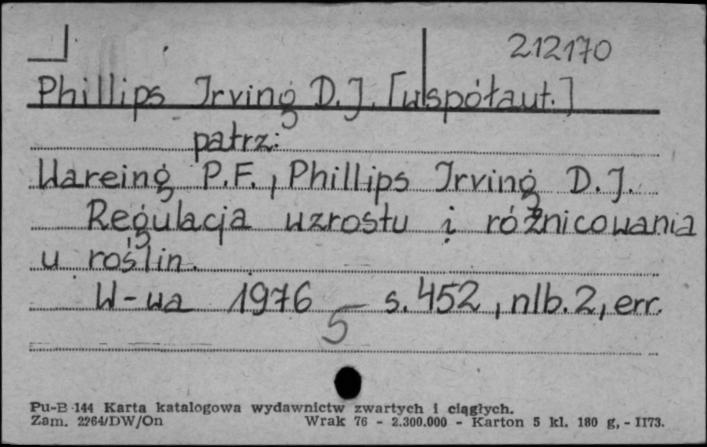 212170
Phillips Irving D.J. [współaut.]
patrz:
Wareing P.F., Phillips Irving D.J.
Regulacja wzrostu i różnicowania
u roślin.
W-wa 1976 s. 452, nlb. 2, err.
5
Pu-B-144 Karta katalogowa wydawnictw zwartych i ciągłych.
Zam. 2264/DW/On Wrak 76 - 2.300.000 - Karton 5 kl. 180 g, - II73.